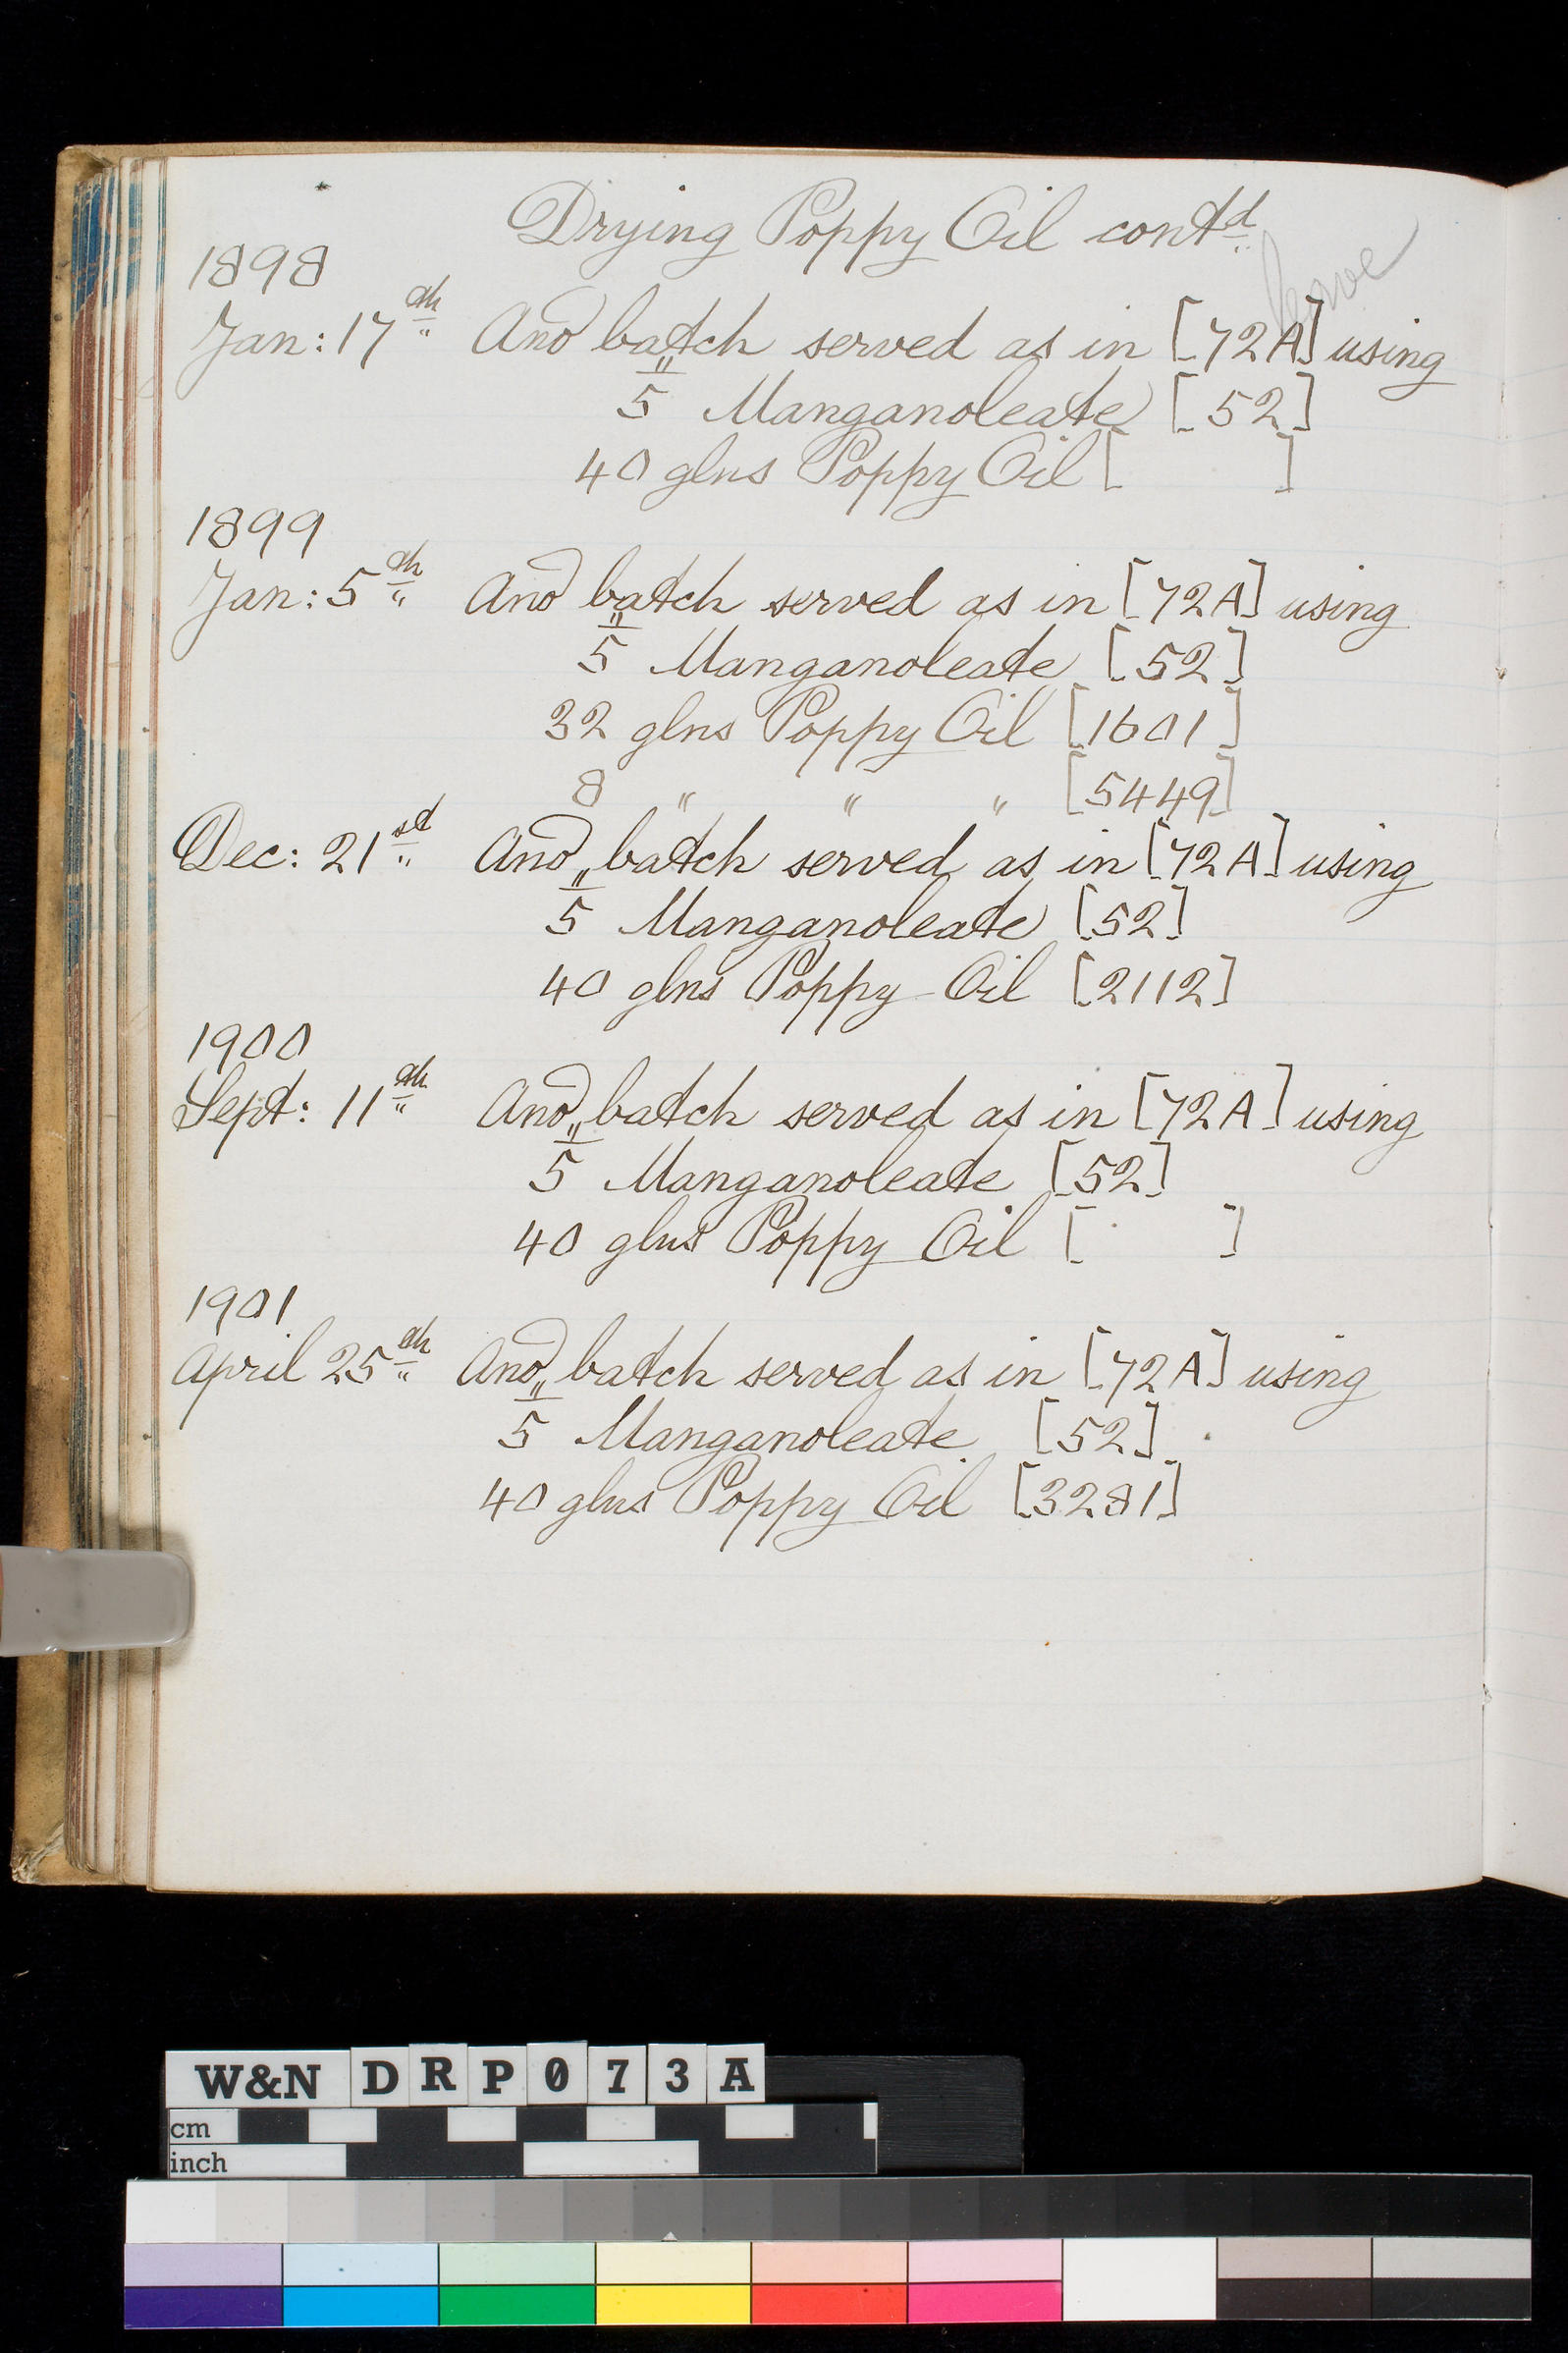 Drying Poppy Oil contd
leave
1898
Jan: 17th Ano batch served as in [72A] using
5" Manganoleate [52]
40 glns Poppy Oil [ ]
1899
Jan: 5th Ano batch served as in [72A] using
5" Manganoleate [52]
32 glns Poppy Oil [1601]
8 " " " [5449]
Dec: 21st Ano batch served as in [72A] using
5" Manganoleate [52]
40 glns Poppy Oil [2112]
1900
Sept: 11th Ano batch served as in [72A] using
5" Manganoleate [52]
40 glns Poppy Oil [ ]
1901
April 25th Ano batch served as in [72A] using
5" Manganoleate [52]
40 glns Poppy Oil [3281]
W&N DRP073A
cm
inch